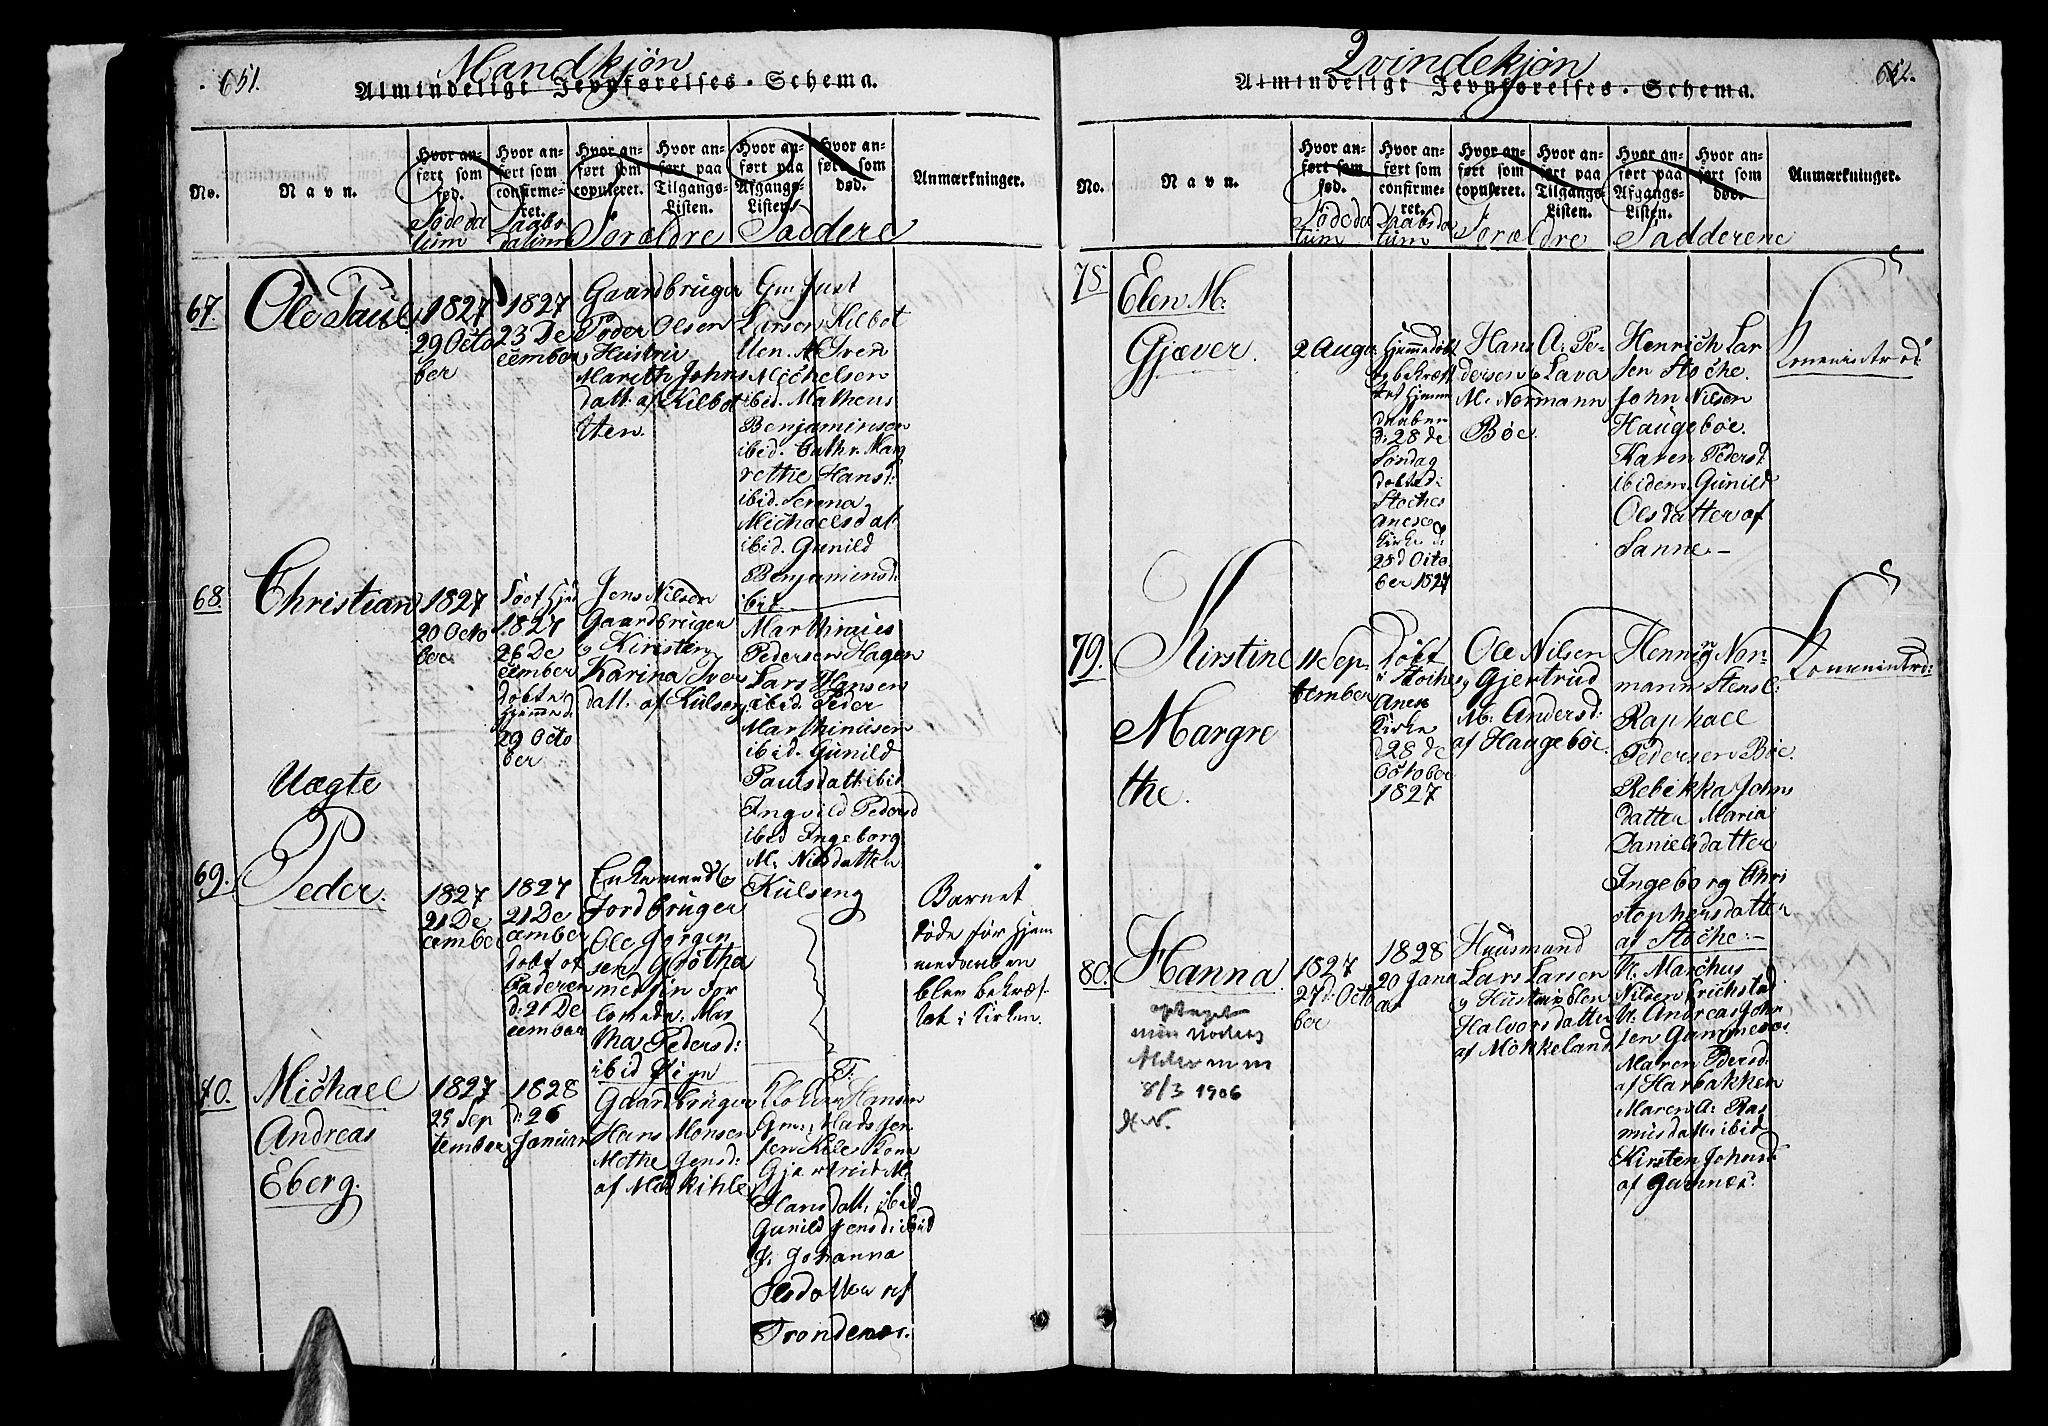 651.
Mandkjøn
Almindeligt Jevnførelses-Schema.
No.
Navn.
Hvor anført som fød.
Hvor anført som confirmeret.
Hvor anført som copuleret.
Hvor anført paa Tilgangs-Listen.
Hvor anført paa Afgangs-Listen.
Hvor anført som død.
Anmærkninger.
Födedatum
Daabsdatum
Forældre
Faddere
67.
Ole Paul
1827
29 Octo
ber
1827
23 De
cember
Gaardbruger
Peder Olsen
Hustrue
Mareth Johns
datt. af Kilbot
ten.
Gm Just
Larsen Kilbot
ten. M Iven
Michelsen
ibid. Matheus
Benjaminsen
ibid. Cathr. Mar
grethe Hansd:
ibid. Serina
Michaelsdat
ibid. Gunild
Benjaminsd:
ibit.
68.
Christian
1827
20 Octo
ber
Døbt Hje
1827
26 De
cember
døbt
hjemme d.
29 Octo
ber
Jens Nilsen
Gaardbruger
Kirsten
Karina Ivers
datt. af Külseng
Marthinus
Pedersen Hagen
Lars Hansen
ibid. Peder
Marthinusen
ibid. Gunild
Paulsdatt. ibid
Ingvild Pedersd
ibid Ingeborg
M. Nilsdatter
Külseng
Uægte
69.
Peder.
1827
21 De
cember
1827
21 De
cember
døbt af
Faderen
d: 21 De
cember
Enkemand
Jordbruger
Ole Jørgen
sen Grøtha
med sin For
lovede, Mar
tha Pedersd:
ibid
Barnet
døde før hjem
medaaben
blev bekræf-
tet i Kirken.
70.
Michael
Andreas
Eberg.
1827
25 Sep
tember
1828
d: 26
Januar
Gaardbruger
Hans Monsen
Methe Jensd:
af Medkihle
Hansen
Gm: Mads Jen
sen Kiles Kone
Gjertrud M.
Hansdatt. ibid
Gunild Jensd: ibid
P. Johanna
Ilsdatter af
Trondenæs.
652.
Qvindekjøn
Almindeligt Jevnførelses-Schema.
No.
Navn.
Hvor anført som fød.
Hvor anført som confirmeret.
Hvor anført som copuleret.
Hvor anført paa Tilgangs-Listen.
Hvor anført paa Afgangs-Listen.
Hvor anført som død.
Anmærkninger.
Födedatum
Daabsdatum
Forældre
Fadderene
78.
Elen M:
Gjæver.
2 Augu
Hjemmedøbt
bekræft
tet Hjemme
daaben
d: 28 de
Søndag
døbt d:
Stochs
anes
Kirke d:
28d Octo
ber 1827
Hans A: Pe-
dersen Lava
M. Normann
Bøe.
Henrich Lar
sen Stoche.
John Nilsen
Haugebøe.
Karen Pedersd:
ibidem. Gunild
Olsdatter af
Sanne.-
Konenintrod
79.
Kirstine
Margre
the.
11 Sep.
tember
Døbt
i Stochs
Anes
Kirke
d 28 de
October
1827
Ole Nilsen
Gjertrud
M. Andersd:
af Haugebøe.
Henning Nor-
mann Stensl:
Raphael
Pedersen Bøe.
Rebikka Johns
datter Maria
Danielsdatter
Ingeborg Chri
stophersdatter
af Stoche:-
Konenintrod:
80.
Hanna.
optaget
min Moders
8/3 1906
H.N.
1827
27 d: Octo
ber
1828
20 Janu
ar
Huusmand
Lars Larsen
Hustrue Elen
Halvorsdatter
af Mökkeland
N. Marchus
Nilsen Erichstad
N. Andreas John
sen Gammenæs
Maren Pedersd:
af Harbakken
Maren A: Ras
musdatt. ibid
Kirsten Johnsd
af Gamnæs.